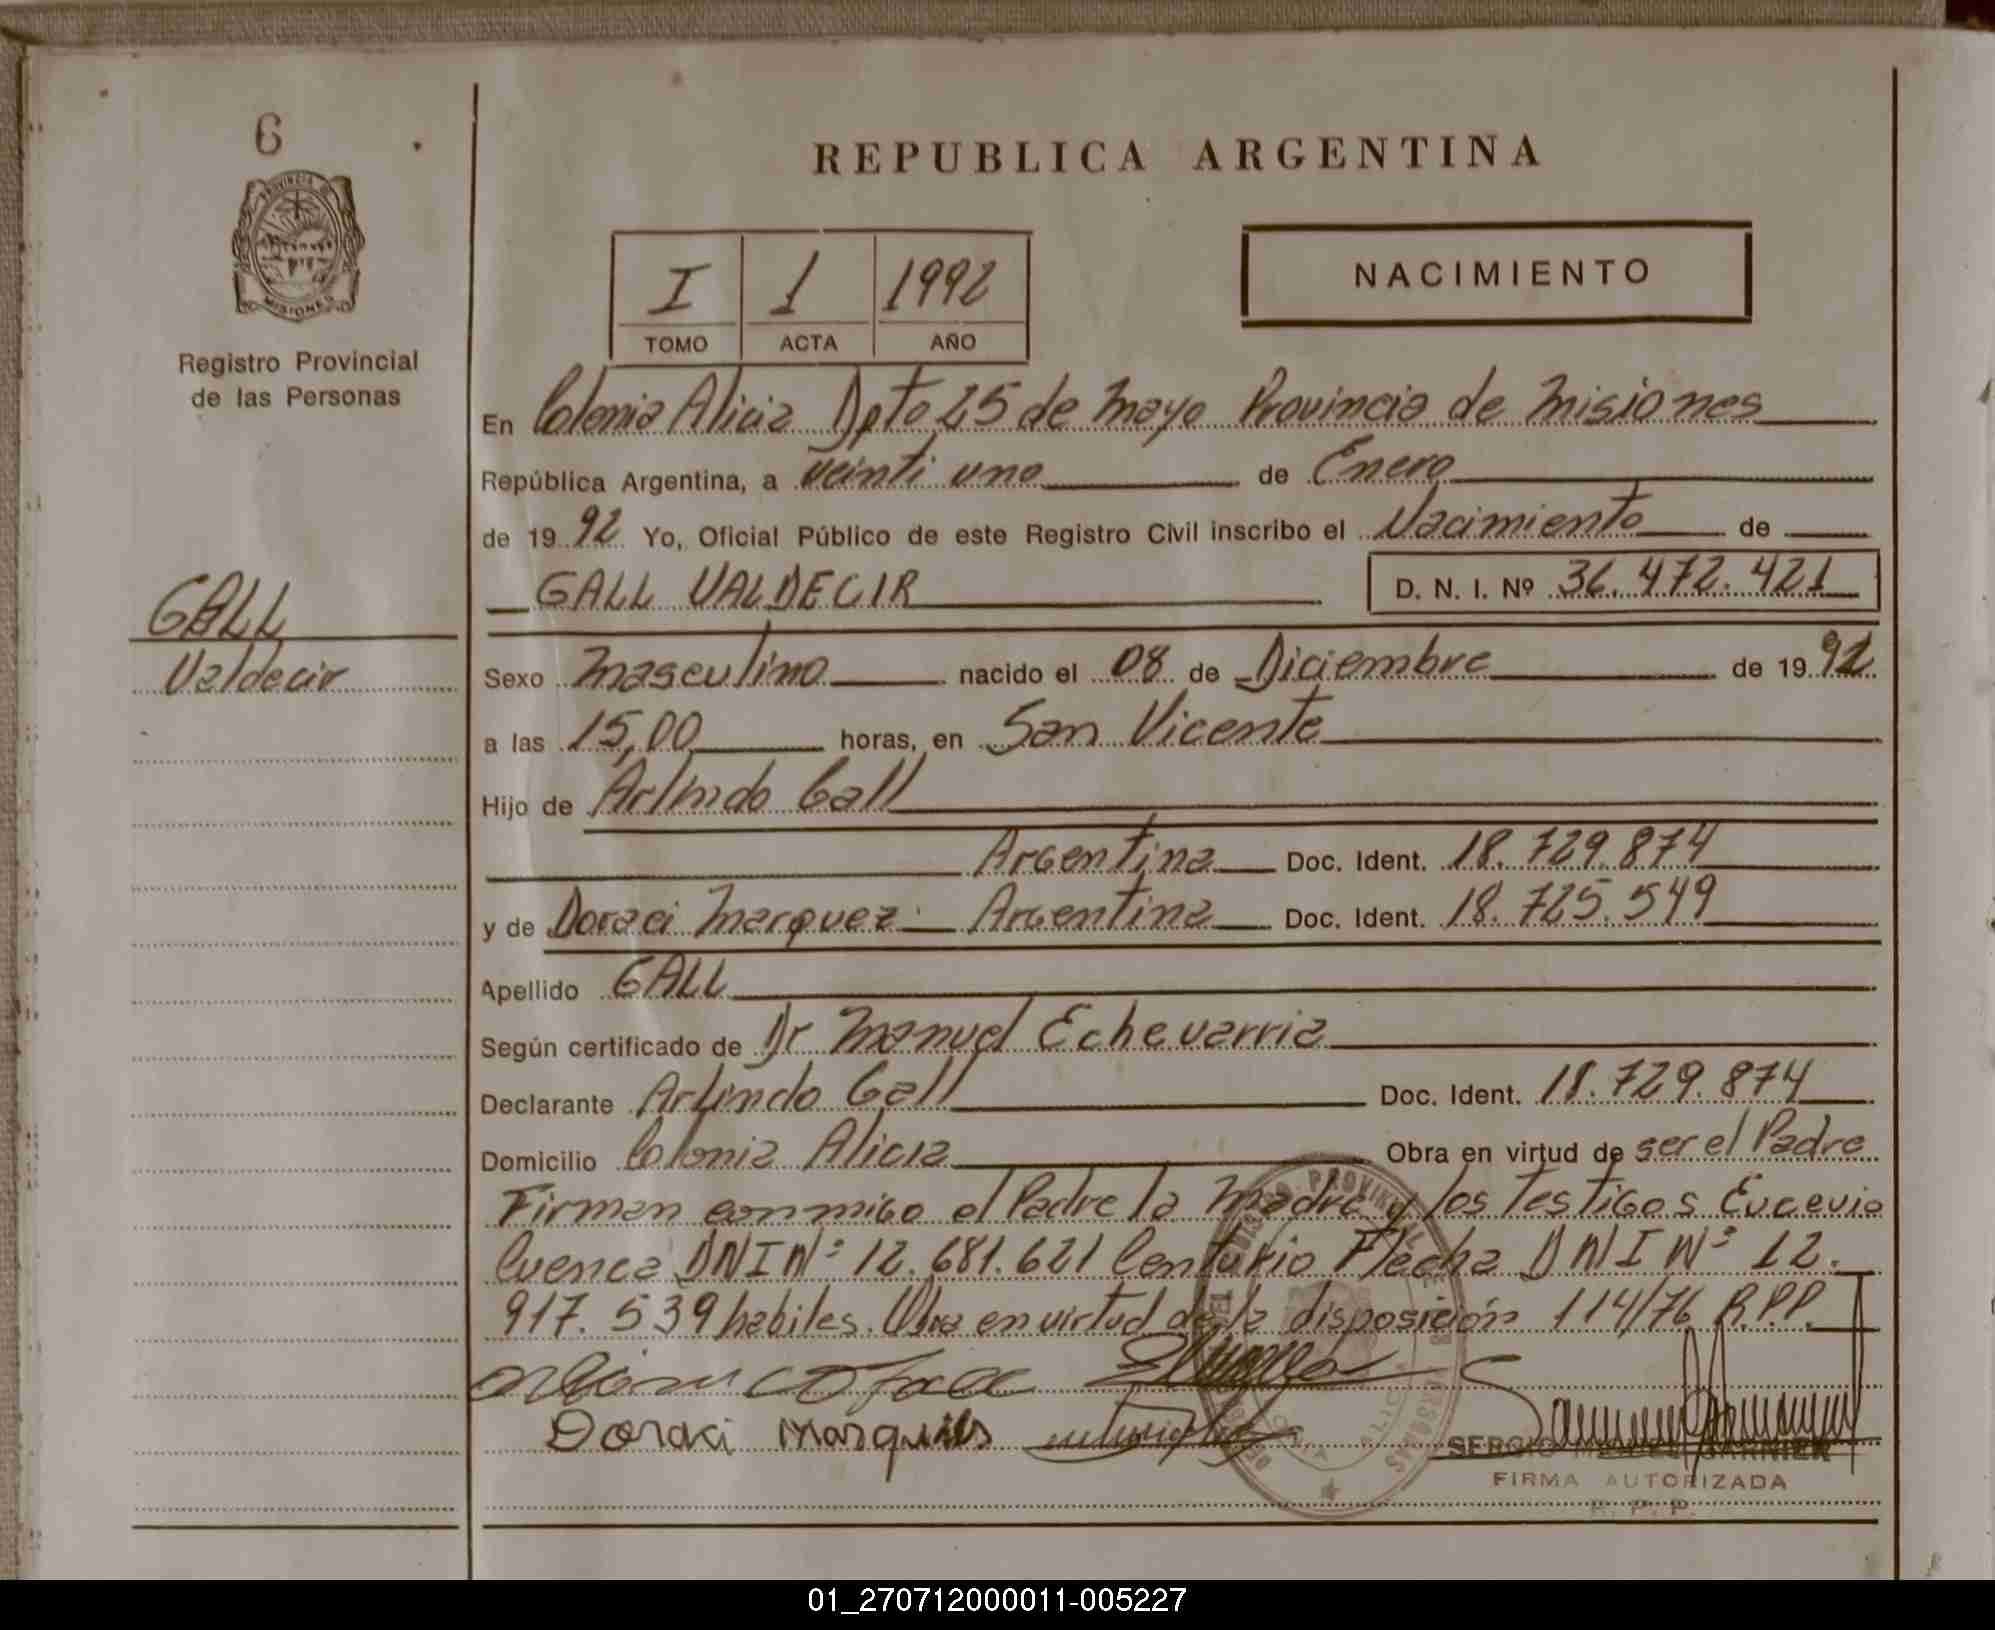 6
REPUBLICA ARGENTINA
PROVINCIA DE
MISIONES
Registro Provincial
de las Personas
I 1 1992
TOMO ACTA AÑO
NACIMIENTO
En Colonia Alicia Dpto 25 de Mayo Provincia de Misiones
República Argentina, a veinti uno de Enero
de 1992 Yo, Oficial Público de este Registro Civil inscribo el Nacimiento de
GALL VALDECIR D. N. I. Nº 36.472.421
GALL
Valdecir
Sexo Masculino nacido el 08 de Diciembre de 1992
a las 15,00 horas, en San Vicente
Hijo de Arlindo Gall
Argentina Doc. Ident. 18.729.874
y de Doraci Marquez Argentina Doc. Ident. 18.725.549
Apellido GALL
Según certificado de Dr Manuel Echevarria
Declarante Arlindo Gall Doc. Ident. 18.729.874
Domicilio Colonia Alicia Obra en virtud de ser el Padre
Firman conmigo el Padre la Madre y los testigos Eucevio
Cuenca DNI Nº 12.681.621 Centurio Flecha DNI Nº 12.
917.539 habiles. Obra en virtud de la disposición 114/76 R.P.P.
Doraci Marques
SERGIO
FIRMA AUTORIZADA
R. P. P.
01_270712000011-005227